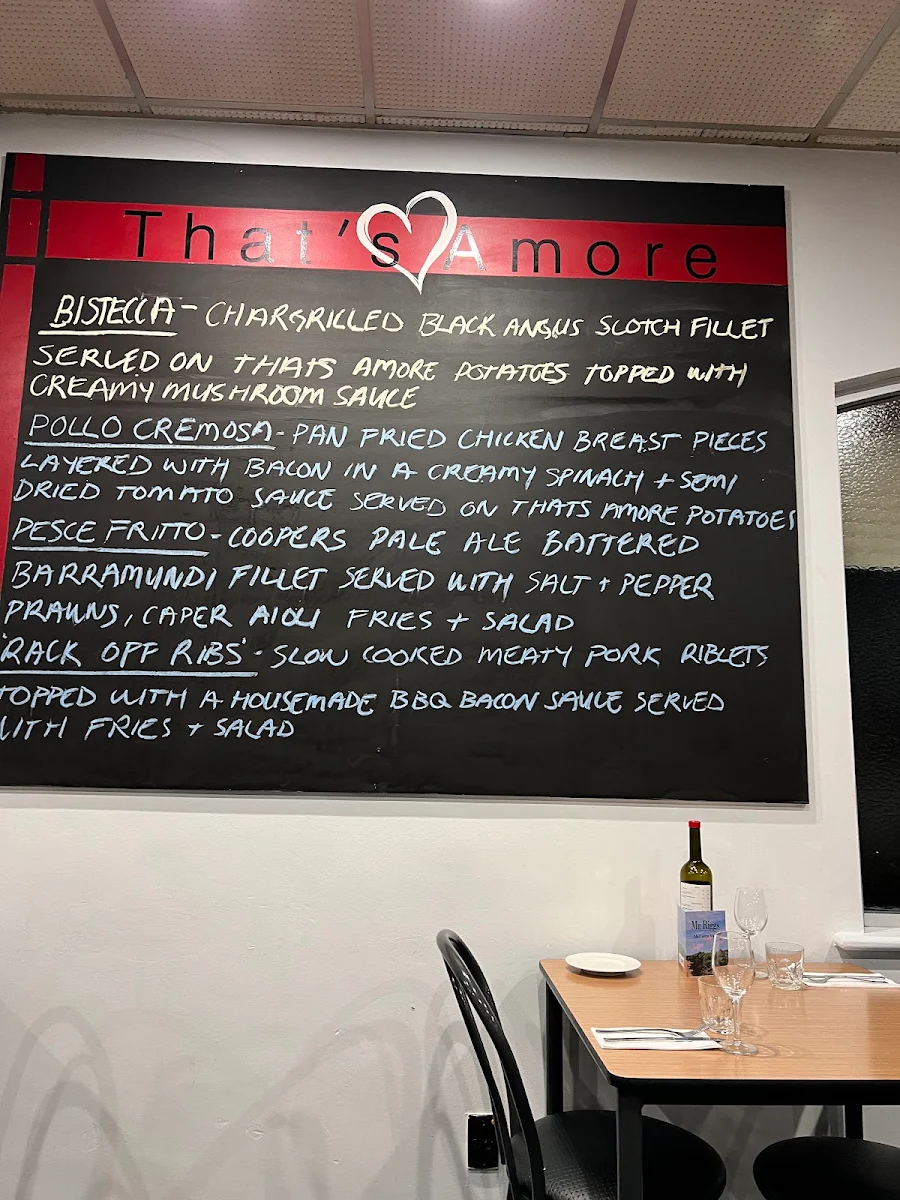 That's Amore
BISTECCA - CHARGRILLED BLACK ANGUS SCOTCH FILLET
SERVED ON THATS AMORE POTATOES TOPPED WITH
CREAMY MUSHROOM SAUCE
POLLO CREMOSA - PAN FRIED CHICKEN BREAST PIECES
LAYERED WITH BACON IN A CREAMY SPINACH + SEMI
DRIED TOMATO SAUCE SERVED ON THATS AMORE POTATOES
PESCE FRITTO - COOPERS PALE ALE BATTERED
BARRAMUNDI FILLET SERVED WITH SALT + PEPPER
PRAWNS, CAPER AIOLI FRIES + SALAD
'RACK OFF RIBS' - SLOW COOKED MEATY PORK RIBLETS
TOPPED WITH A HOUSEMADE BBQ BACON SAUCE SERVED
WITH FRIES + SALAD
Mr. Riggs